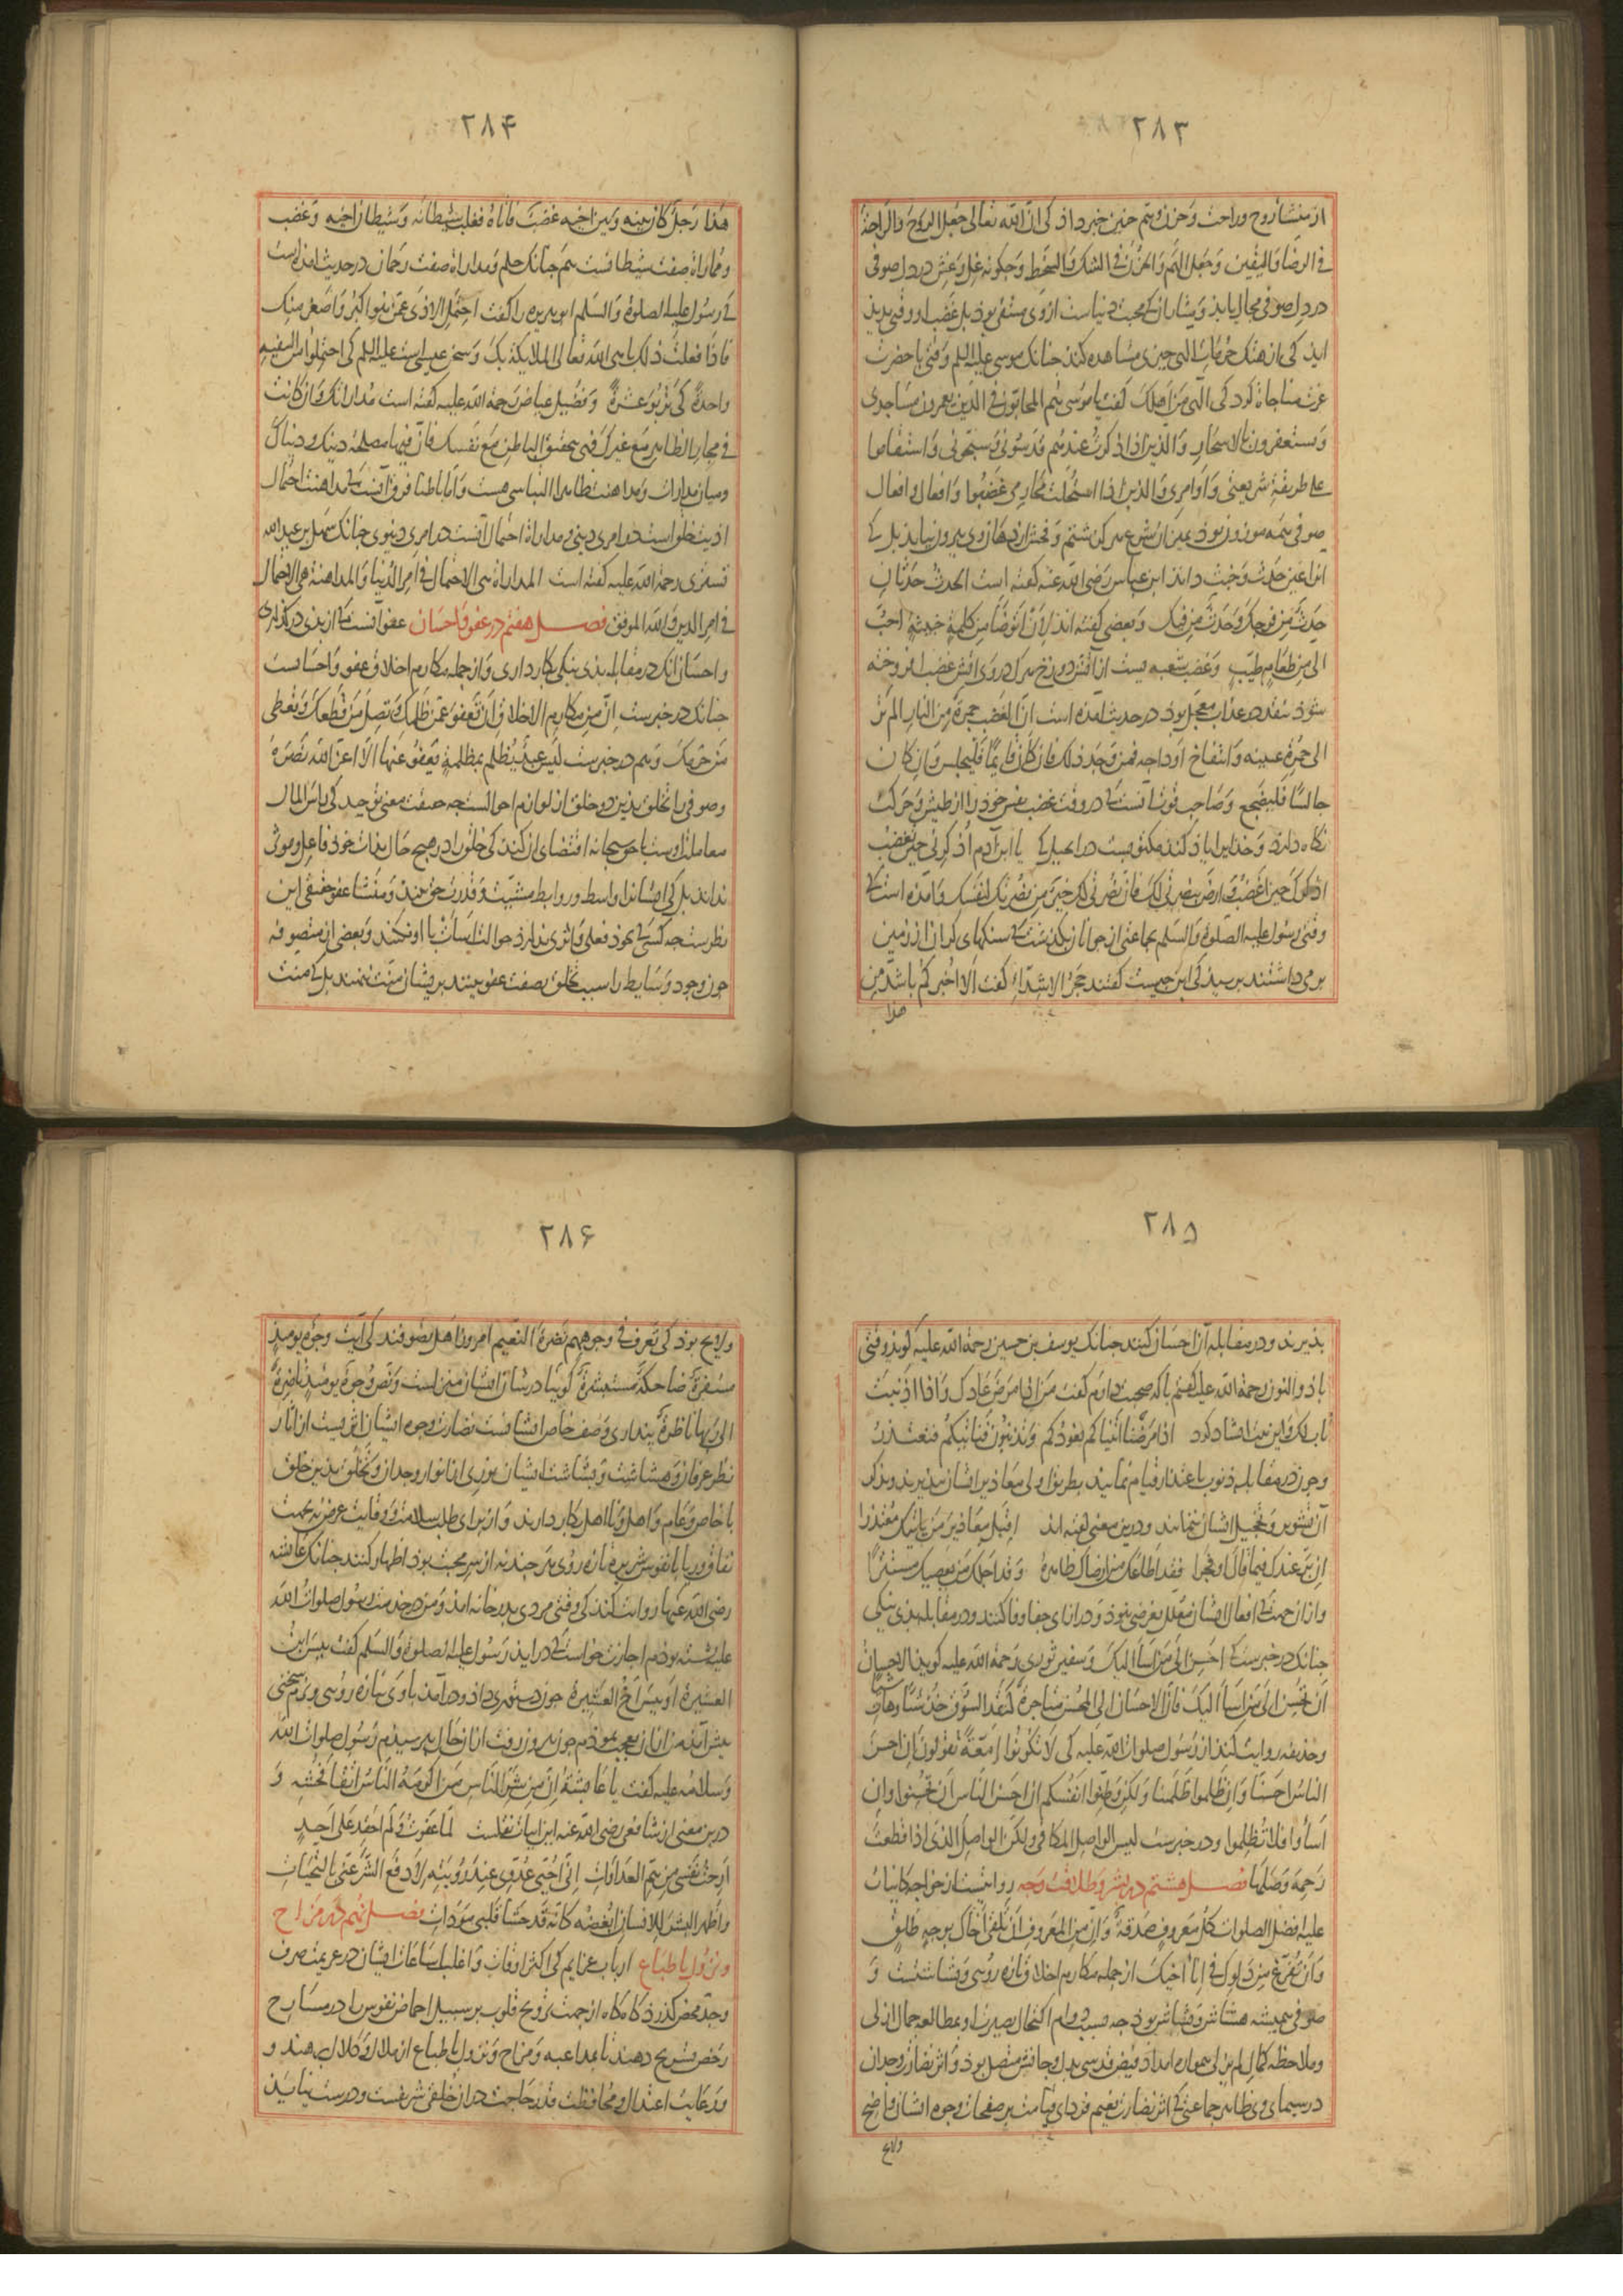 ۲۸۳
از منشأ روح و راحت و حزن و هم چنین خبر داد کی ان الله تعالی جعل الروح والراحة
فی الرضا والیقین وجعل الهم والحزن فی الشک والسخط و چگونه غل و غش در دل صوفی
در دل صوفی مجال یابد و مثار آن کی محبت دنیاست از وی منتفی بود بل غضب او وقتی پدید
آید کی از هتک حرمات الهی چیزی مشاهده کند چنانک موسی علیه السلم وقتی با حضرت
عزت مناجاة کرد کی الهی من اهلک گفت یا موسی هم المتحابون فی الذین یعمرون مساجدی
ویستغفرون بالاسحار والذین اذا ذکرت عندهم قدسونی وسبحونی واستقاموا
علی طریقة شریعتی واوامری والذین اذا استحلت محارمی غضبوا وافعال و اقوال
صوفی همه موزون بود بمیزان شرع هرگز شتم و فحش از دهان وی بیرون نیاید بل کی
انرا عین حدث و خبث داند ابن عباس رضی الله عنه گفته است الحدث حدثان
حدث من فرجک وحدث من فیک و بعضی گفته اند لان اتوضأ من کلمة خبیثة احب
الی من طعام طیب و غضب شعبه ایست از آتش دوزخ هرک در وی آتش غضب افروخته
شود بنقد در عذاب معجل بود در حدیث آمده است ان الغضب جمرة من النار الم تر
الی حمرة عینیه وانتفاخ اوداجه فمن وجد ذلک فان کان قایما فلیجلس وان کان
جالسا فلیضجع و صاحب قوت آنست کی در وقت غضب نفس خود را از طیش و حرکت
نگاه دارد و خدای را یاد کند مکتوبست در انجیل کی یا ابن آدم اذکرنی حین تغضب
اذکرک حین اغضب وارض بنصرتی لک فان نصرتی لک خیر من نصرتک لنفسک و آمده است کی
وقتی رسول علیه الصلوة والسلم بجماعتی از جوانان بگذشت کی سنگهای گران از زمین
بر می داشتند پرسید کی این چیست گفتند حجر الاشداء گفت الا اخبرکم باشد من
هذا
۲۸۴
هذا رجل کان بینه وبین اخیه غضب فاتاه فغلب شیطانه وشیطان اخیه و غضب
و مماراة صفت شیطانست هم چنانک حلم و مداراة صفت رحمان در حدیث آمده است
کی رسول علیه الصلوة والسلم ابو هریره را گفت احتمل الاذی عمن هو اکبر واصغر منک
فاذا فعلت ذلک باهی الله تعالی الملایکة بک و سخن عیسی است علیه السلم کی احتملوا من السفیه
واحدة کی تربوا عشرة و فضیل عیاض رحمة الله علیه گفته است مداراتک وان کانت
فی مجاری الظاهر مع غیرک فهی بتحقیق الباطن مع نفسک فان فیها مصلحة دینک ودنیاک
و میان مدارات و مداهنت ظاهرا التباسی هست و اما باطنا فرق آنست کی مداهنت احتمال
اذیت خلق است در امری دینی و مداراة احتمال آنست در امری دنیوی چنانک سهل بن عبد الله
تستری رحمة الله علیه گفته است المداراة هی الاحتمال فی امر الدنیا والمداهنة هی الاحتمال
فی امر الدین والله الموفق فصل هفتم در عفو و احسان عفو آنست کی از بدی درگذری
و احسان انک در مقابله بدی نیکی بکار داری و از جمله مکارم اخلاق عفو و احسانست
چنانک در خبرست ان من مکارم الاخلاق ان تعفو عمن ظلمک وتصل من قطعک وتعطی
من حرمک و هم در خبرست لیس عبد یظلم بمظلمة یعفو عنها الا اعز الله نصره
و صوفی را تخلق بدین دو خلق از لوازم احوالست چه صفت معنی توحید کی راس المال
معاملت اوست با حق سبحانه اقتضای آن کند کی خلق را در هیچ حال بذات خود فاعل و موثر
نداند بل کی ایشان را واسط و روابط مشیت و قدرت حق بیند و منشأ عفو حقیقی این
نظرست چه کسی کی بخود فعلی و اثری ندارد حوالت اساءت با او نکند و بعضی از متصوفه
چون وجود وسایط را سبب تخلق بصفت عفو بینند بر ایشان منت ننهند بل کی منت
۲۸۵
پذیرند و در مقابله آن احسان کنند چنانک یوسف بن حسین رحمة الله علیه گوید وقتی
با ذو النون رحمة الله علیه گفتم با که صحبت دارم گفت من اذا مرضت عادک واذا اذنبت
تاب لک و این بیت انشاد کرد اذا مرضنا اتیناکم نعودکم وتذنبون فناتیکم فنعتذر
و چون در مقابله ذنوب باعتذار قیام نمایند بطریق اولی معاذیر ایشان بپذیرند و بذکر
آن تشویر و تخجیل ایشان ننمایند و درین معنی گفته اند اقبل معاذیر من یاتیک معتذرا
ان بر عندک فیما قال او فجرا فقد اطاعک من ارضاک ظاهره وقد اجلک من یعصیک مستترا
و از آن جهت کی افعال ایشان معلل بغرض نبود و در ازای جفا وفا کنند و در مقابله بدی نیکی
چنانک در خبرست کی احسن الی من اسأ الیک و سفین ثوری رحمة الله علیه گوید الاحسان
ان تحسن الی من اسأ الیک فان الاحسان الی المحسن متاجرة کنقد السوق خذ شیئا وهات شیئا
و حذیفه روایت کند از رسول صلوات الله علیه کی لا تکونوا امعة تقولون ان احسن
الناس احسنا وان ظلموا ظلمنا ولکن وطنوا انفسکم ان احسن الناس ان تحسنوا وان
اسأوا فلا تظلموا و در خبرست لیس الواصل المکافی ولکن الواصل الذی اذا قطعت
رحمه وصلها فصل هشتم در بشر و طلاقت وجه روایتست از خواجه کاینات
علیه افضل الصلوات کل معروف صدقة وان من المعروف ان تلقی اخاک بوجه طلق
وان تفرغ من دلوک فی اناء اخیک از جمله مکارم اخلاق تازه رویی و بشاشتست و
صوفی همیشه هشاش و بشاش بود چه بسبب دوام اکتحال بصیرت او بمطالعه جمال ازلی
و ملاحظه کمال لم یزلی همواره امداد فیض قدسی بدل و جانش متصل بود و اثر نضارت وجدان
در سیمای وی ظاهر جماعتی کی اثر نضارت نعیم فردای قیامت بر صفحات وجوه ایشان واضح
ولایح
۲۸۶
ولایح بود کی تعرف فی وجوههم نضرة النعیم امروز اهل تصوفند کی آیت وجوه یومئذ
مسفرة ضاحکة مستبشرة گوییا در شان ایشان منزل است و نص وجوه یومئذ ناضرة
الی ربها ناظرة پنداری وصف خاص ایشانست نضارت وجوه ایشان اثریست از آثار
نظر عرفان و هشاشت و بشاشت ایشان نوری از انوار وجدان و تخلق بدین خلق
با خاص و عام و اهل و نا اهل بکار دارند و از برای طلب سلامت و وقایت عرض نه بجهت
نفاق و ریا با نفوس شریره تازه رویی هر چند نه از سر محبت بود اظهار کنند چنانک عایشه
رضی الله عنها روایت کند کی وقتی مردی بدر خانه آمد و من در خدمت رسول صلوات الله
علیه نشسته بودم اجازت خواست کی در آید رسول علیه الصلوة والسلم گفت بیس ابن
العشیرة او بیس اخ العشیرة چون دستوری داد و در آمد با وی بتازه رویی و نرم سخنی
پیش آمد من از آن تعجب نمودم چون بیرون رفت از آن حال پرسیدم رسول صلوات الله
وسلامه علیه گفت یا عایشة ان من شر الناس من اکرمه الناس اتقاء فحشه و
درین معنی از شافعی رضی الله عنه این ابیات نقلست لما عفوت ولم احقد علی احد
ارحت نفسی من هم العداوات انی احیی عدوی عند رویته لادفع الشر عنی بالتحیات
واظهر البشر للانسان ابغضه کانه قد حشا قلبی مودات فصل نهم در مزاح
و نزول با طباع ارباب عزایم کی اکثر اوقات و اغلب ساعات ایشان در عزیمت صرف
و جد محض گذرد گاه گاه از جهت ترویح قلوب بر سبیل احماض نفوس را در مسارح
رخص تسریح دهند تا بمداعبه و مزاح و نزول با طباع از ملال و کلال برهند و
و رعایت اعتدال و محافظت قدر حاجت در ان خلقی شریفست و درست نیاید